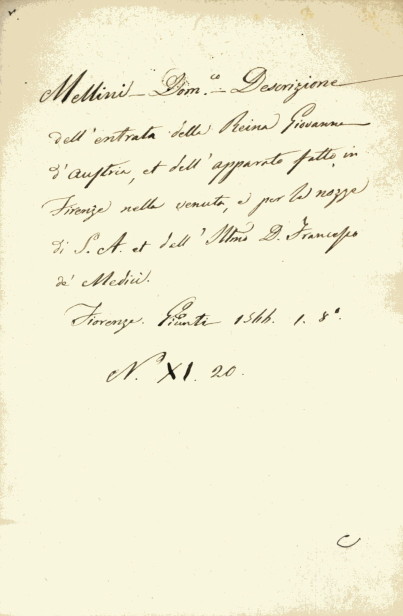 Mellini - Dom.co - Descrizione
dell'entrata della Reina Giovanna
d'Austria, et dell'apparato fatto in
Firenze nella venuta, e per le nozze
di S. A. et dell' Illmo D. Francesco
de' Medici.
Fiorenza. Giunti 1566. 1. 8°.
N.° XI. 20.
C